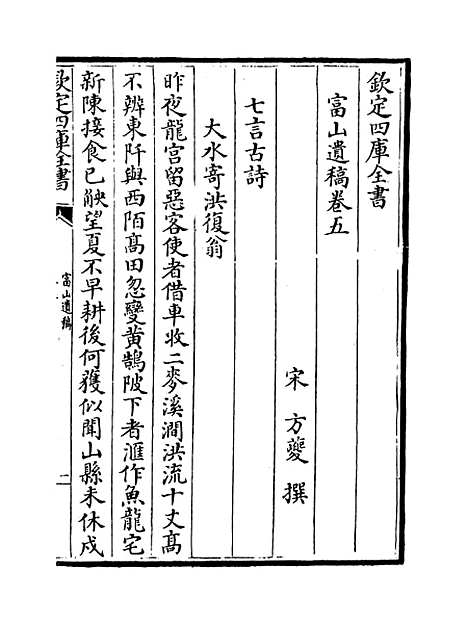 欽定四庫全書
富山遺稿卷五
宋 方夔 撰
七言古詩
大水寄洪復翁
昨夜龍宮留惡客使者借車收二麥溪澗洪流十丈髙
不辨東阡與西陌髙田忽變黃鵠陂下者滙作魚龍宅
新陳接食已觖望夏不早耕後何獲似聞山縣未休戍
欽定四庫全書
富山遺稿